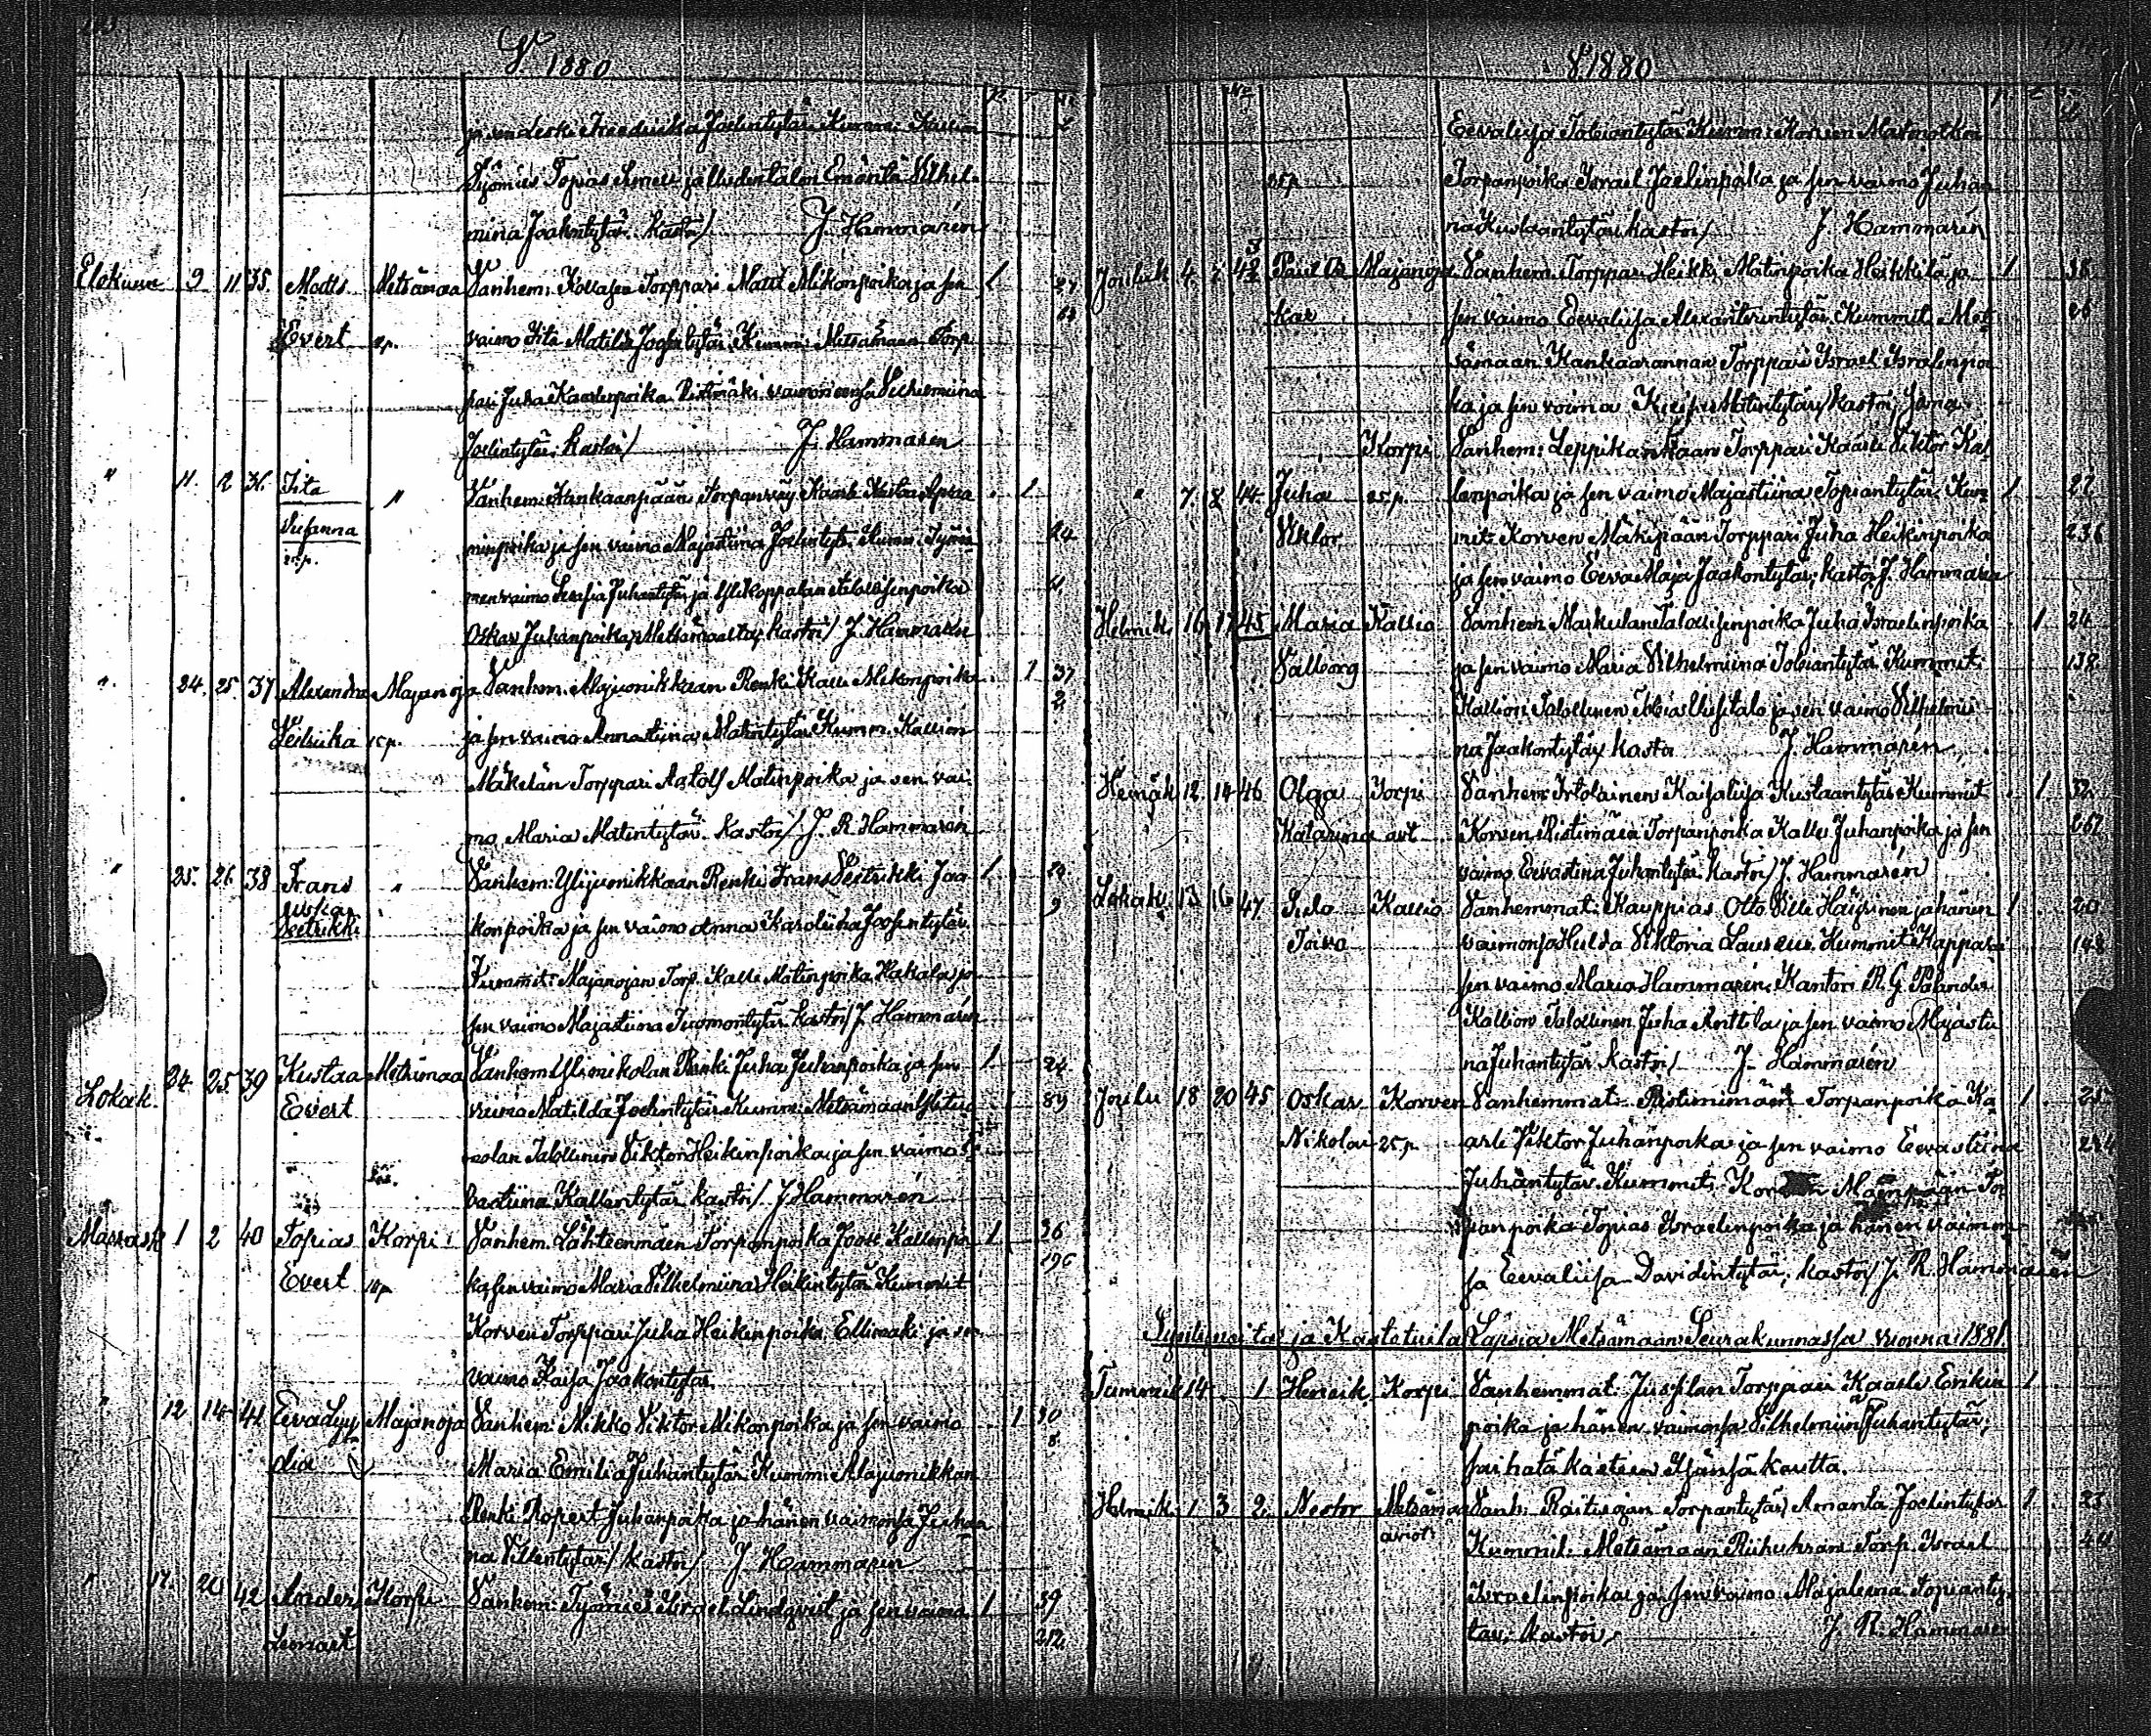 1880
ja sen leski Freedriika Joelintytär Kummi: Kallion
Työmies Topias Simeli ja Uudentalon Emäntä Vilhel-
mina Jaakontytär. Kastoi/ J. Hammarén
Elokuun 9. 11. 35. Matts Metsämaa Vanhem: Torppari Matti Mikonpoika ja sen 1
Evert vaimo Iita Matilda Kummi: Metsämaan Torp
pari Juha Kaarlenpoika Ristimäki vaimoneensa Vilhelmiina
Joelintytär. Kastoi/ J. Hammarén
" 11. 12 36. Iita " Vanhem: Kankaanpään Torpanväy Kaarle Kustaa 1
Susanna ninpoika ja sen vaimo Majastiina Joelintytär. Kumm: Työmie 24
menvaimo Juhantytär ja
Oskar Juhanpoika Metsämaalta, kastoi/ J. Hammarén
" 24. 25. 37 Alexandra Majanoja Vanhem. Alajuonikkaan Renki Kalle Mikonpoika 1 37
Vedriika ja sen vaimo Annastiina Matintytär Kumm. Kallion
Mäkelän Torppari Aatolf Matinpoika ja sen vai-
mo Maria Matintytär. Kastoi/. J. R. Hammarén
" 25. 26. 38 Frans " Vanhem: Ylijuonikkaan Renki Frans Veetrikki Jaa- 1
Oskar
Veetrikki konpoika ja sen vaimo Anna Karoliina Joosentytär. 9
Kummit: Majanojan Torp. Kalle Matinpoika Hakala ja
sen vaimo Majastiina Tuomontytär. Kastoi/ J. Hammarén
Lokak. 24. 25. 39 Kustaa Metsämaa Vanhem Renki Juha Juhanpoika ja sen 1 24
Evert vaimo Matilda Joelintytär Kumm: Metsämaan 89
Talollinen Viktor Heikinpoika ja sen vaimo
Kallentytär kastoi/. J Hammarén
Marrask 1 2 40 Topias Korpi Vanhem. Lähteenmäen Torpanpoika Joose Kallenpoi 1 36
Evert ka sen vaimo Maria Vilhelmiina Heikintytär Kummit 196
Korven Torppari Juha Heikinpoika Ellimäki ja sen
vaimo Kaisa Jaakontytär.
" 12 14 41 Eeva Lyy Majanoja Vanhem: Mikko Viktor Mikonpoika ja sen vaimo 1 30
dia Maria Emilia Juhantytär Kumm: Alajuonikkan 8
Renki Ropert Juhanpoika ja hänen vaimonsa Juhan
na Villentytär/ kastoi/ J. Hammarén
" 17. 20 42 Ander Korpi Vanhem: Työmies Israel Lindqvist ja sen vaimo 1 39
Lennart 212
1880
Eevaliisa Tobiantytär Kumm: Korven
Torpanpoika Israel Joelinpoika ja sen vaimo Juhan
na Kustaantytär kastoi/ J. Hammarén
Jouluk 4. 7. 43 Paul Os Majanoja Vanhem. Torppari Heikki Matinpoika Heikkilä ja 1 38
kar sen vaimo Eevaliisa Alexanterintytär. Kummit. Met 26
sämaan Kankaarannan Torppari Israel Israelinpoi
ka ja sen vaimo Matintytär, kastoi,
Korpi Vanhem: Leppikankaan Torppari Kaarle Viktor Kal
" 7. 8 44 Juha 25 p. lenpoika ja sen vaimo Majastiina Topiantytär. Kum 1 27
Viktor mit: Korven Mäkipään Torppari Juha Heikinpoika 236
ja sen vaimo Eeva Maja Jaakontytär; kastoi J. Hammarén
Helmik. 16 17 45 Maria Kallio Vanhem Markulan Talollisenpoika Juha Israelinpoika 1 24
Valborg ja sen vaimo Maria Vilhelmiina Tobiantytär. Kummit: 138.
Kallion Talollinen Tobias Uusitalo ja sen vaimo Vilhelmii
na Jaakontytär kastoi J. Hammarén
Heinäk 12. 14 46 Olga Korpi Vanhem: Irtolainen Kaisaliisa Kustaantytär Kummit 1 32
Katarina avt. Korven Ristimäen Torpanpoika Kalle Juhanpoika ja sen 267
vaimo Eevastiina Juhantytär. Kastoi/ J. Hammarén
Lokak. 13 16 47 Kallio Vanhemmat: Kauppias Otto Ville Häyrinen ja hänen 1 20
Toivo vaimonsa Hulda Viktoria Laureus. Kummit: Kappala 148
sen vaimo Maria Hammarén, Kantori R. G. Palander
Kallion Talollinen Juha Anttila ja sen vaimo Majastii
na Juhantytär kastoi/ J. Hammarén
Joulu 18 20 45 Oskar Korven Vanhemmat: Ristinimäen Torpanpoika Ka 1 25
Nikolai 25 p. arle Viktor Juhanpoika ja sen vaimo Eevastiina
Juhantytär. Kummit: Korven Mäenpään Tor
panpoika Topias Israelinpoika ja hänen vaimon
sa Eevaliisa Davidintytär; kastoi/ J. R. Hammarén
Syntyneitä ja Kastetuita Lapsia Metsämaan Seurakunnassa vuonna 1881.
Tammik 14 1 Henrik Korpi Vanhemmat: Torppari Kaarle Erikin 1
poika ja hänen vaimonsa Vilhelmiina Juhantytär;
sai hätä kasteen Isänsä kautta.
Helmik. 1 3 2. Nestor Metsämaa Vanh: Raitiojan Torpantytär Amanta Joelintytär 1 23
aviot: Kummit: Metsämaan Torp. Israel 44
Israelinpoika ja sen vaimo Majaleena Topianty
tär; kastoi, J. R. Hammarén